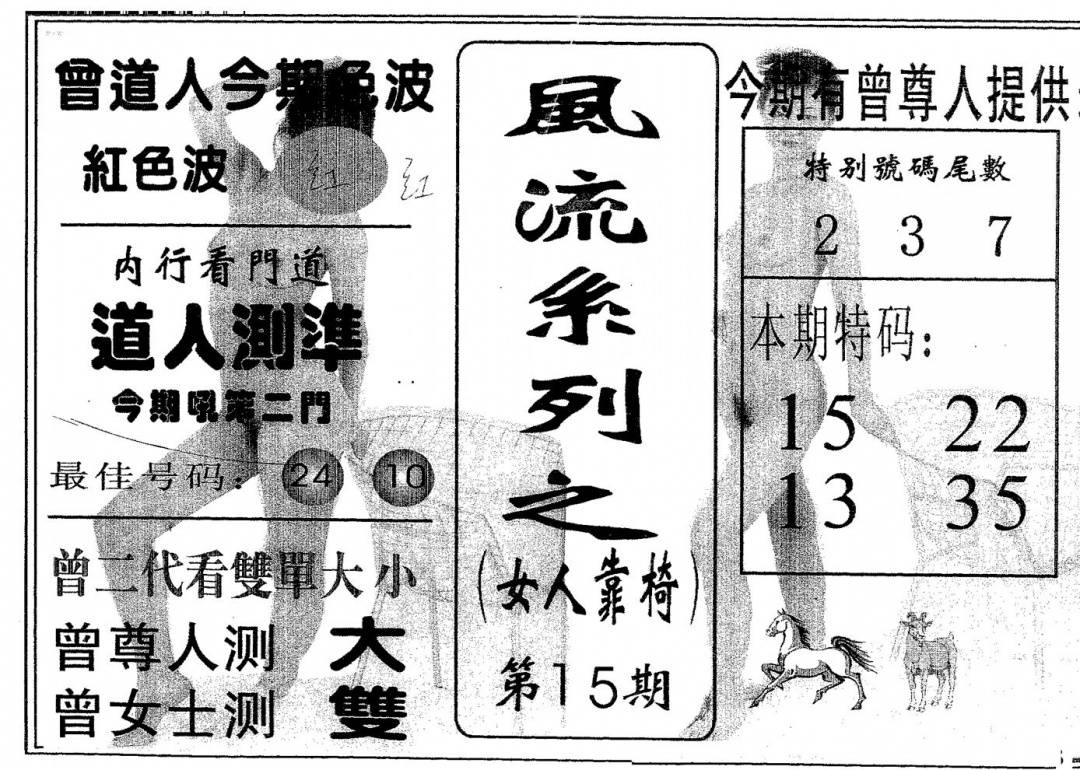 曾道人今期色波
紅色波 紅 红
内行看門道
道人測準
今期吼第二門
最佳号码：24 10
曾二代看雙單大小
曾尊人测 大
曾女士测 雙
風流系列之
（女人靠椅）
第15期
今期有曾尊人提供
特别號碼尾數
2 3 7
本期特码：
15 22
13 35